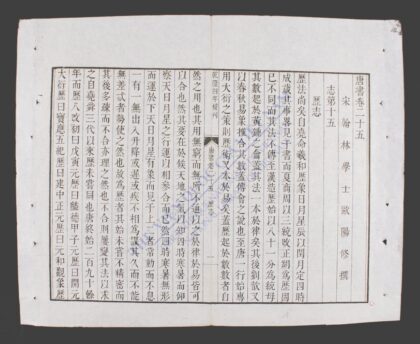 唐書卷二十五
宋翰林學士歐陽修撰
志第十五
歷志
歷法尚矣自堯命羲和歷象日月星辰以閏月定四時
成歲其事畧見于書而夏商周以三統改正朔為歷固
已不同而其法不傳至漢造歷始以八十一分為統母
其數起於黃鐘之龠葢其法一本於律矣其後劉歆又
以春秋易象推合其數葢傅會之說也至唐一行始專
用大衍之策則歷術又本於易矣葢歷起於數數者自
乾隆四年校刊
唐書卷二十五 歷志
然之用也其用無窮而無所不通以之於律於易皆可
以合也然其要在於候天地之氣以知四時寒暑而仰
察天日月星之行運以相參合而已然四時寒暑無形
而運於下天日月星有象而見于上二者常動而不息
一有一無出入升降或遲或疾不相為謀其久而不能
無差忒者勢使之然也故為歷者其始未嘗不精密而
其後多疎而不合亦理之然也不合則屢變其法以求
之自堯舜三代以來歷未嘗同也唐終始二百九十餘
年而歷八改初曰戊寅元歷曰麟德甲子元歷曰開元
大衍歷曰寶應五紀歷曰建中正元歷曰元和觀象歷